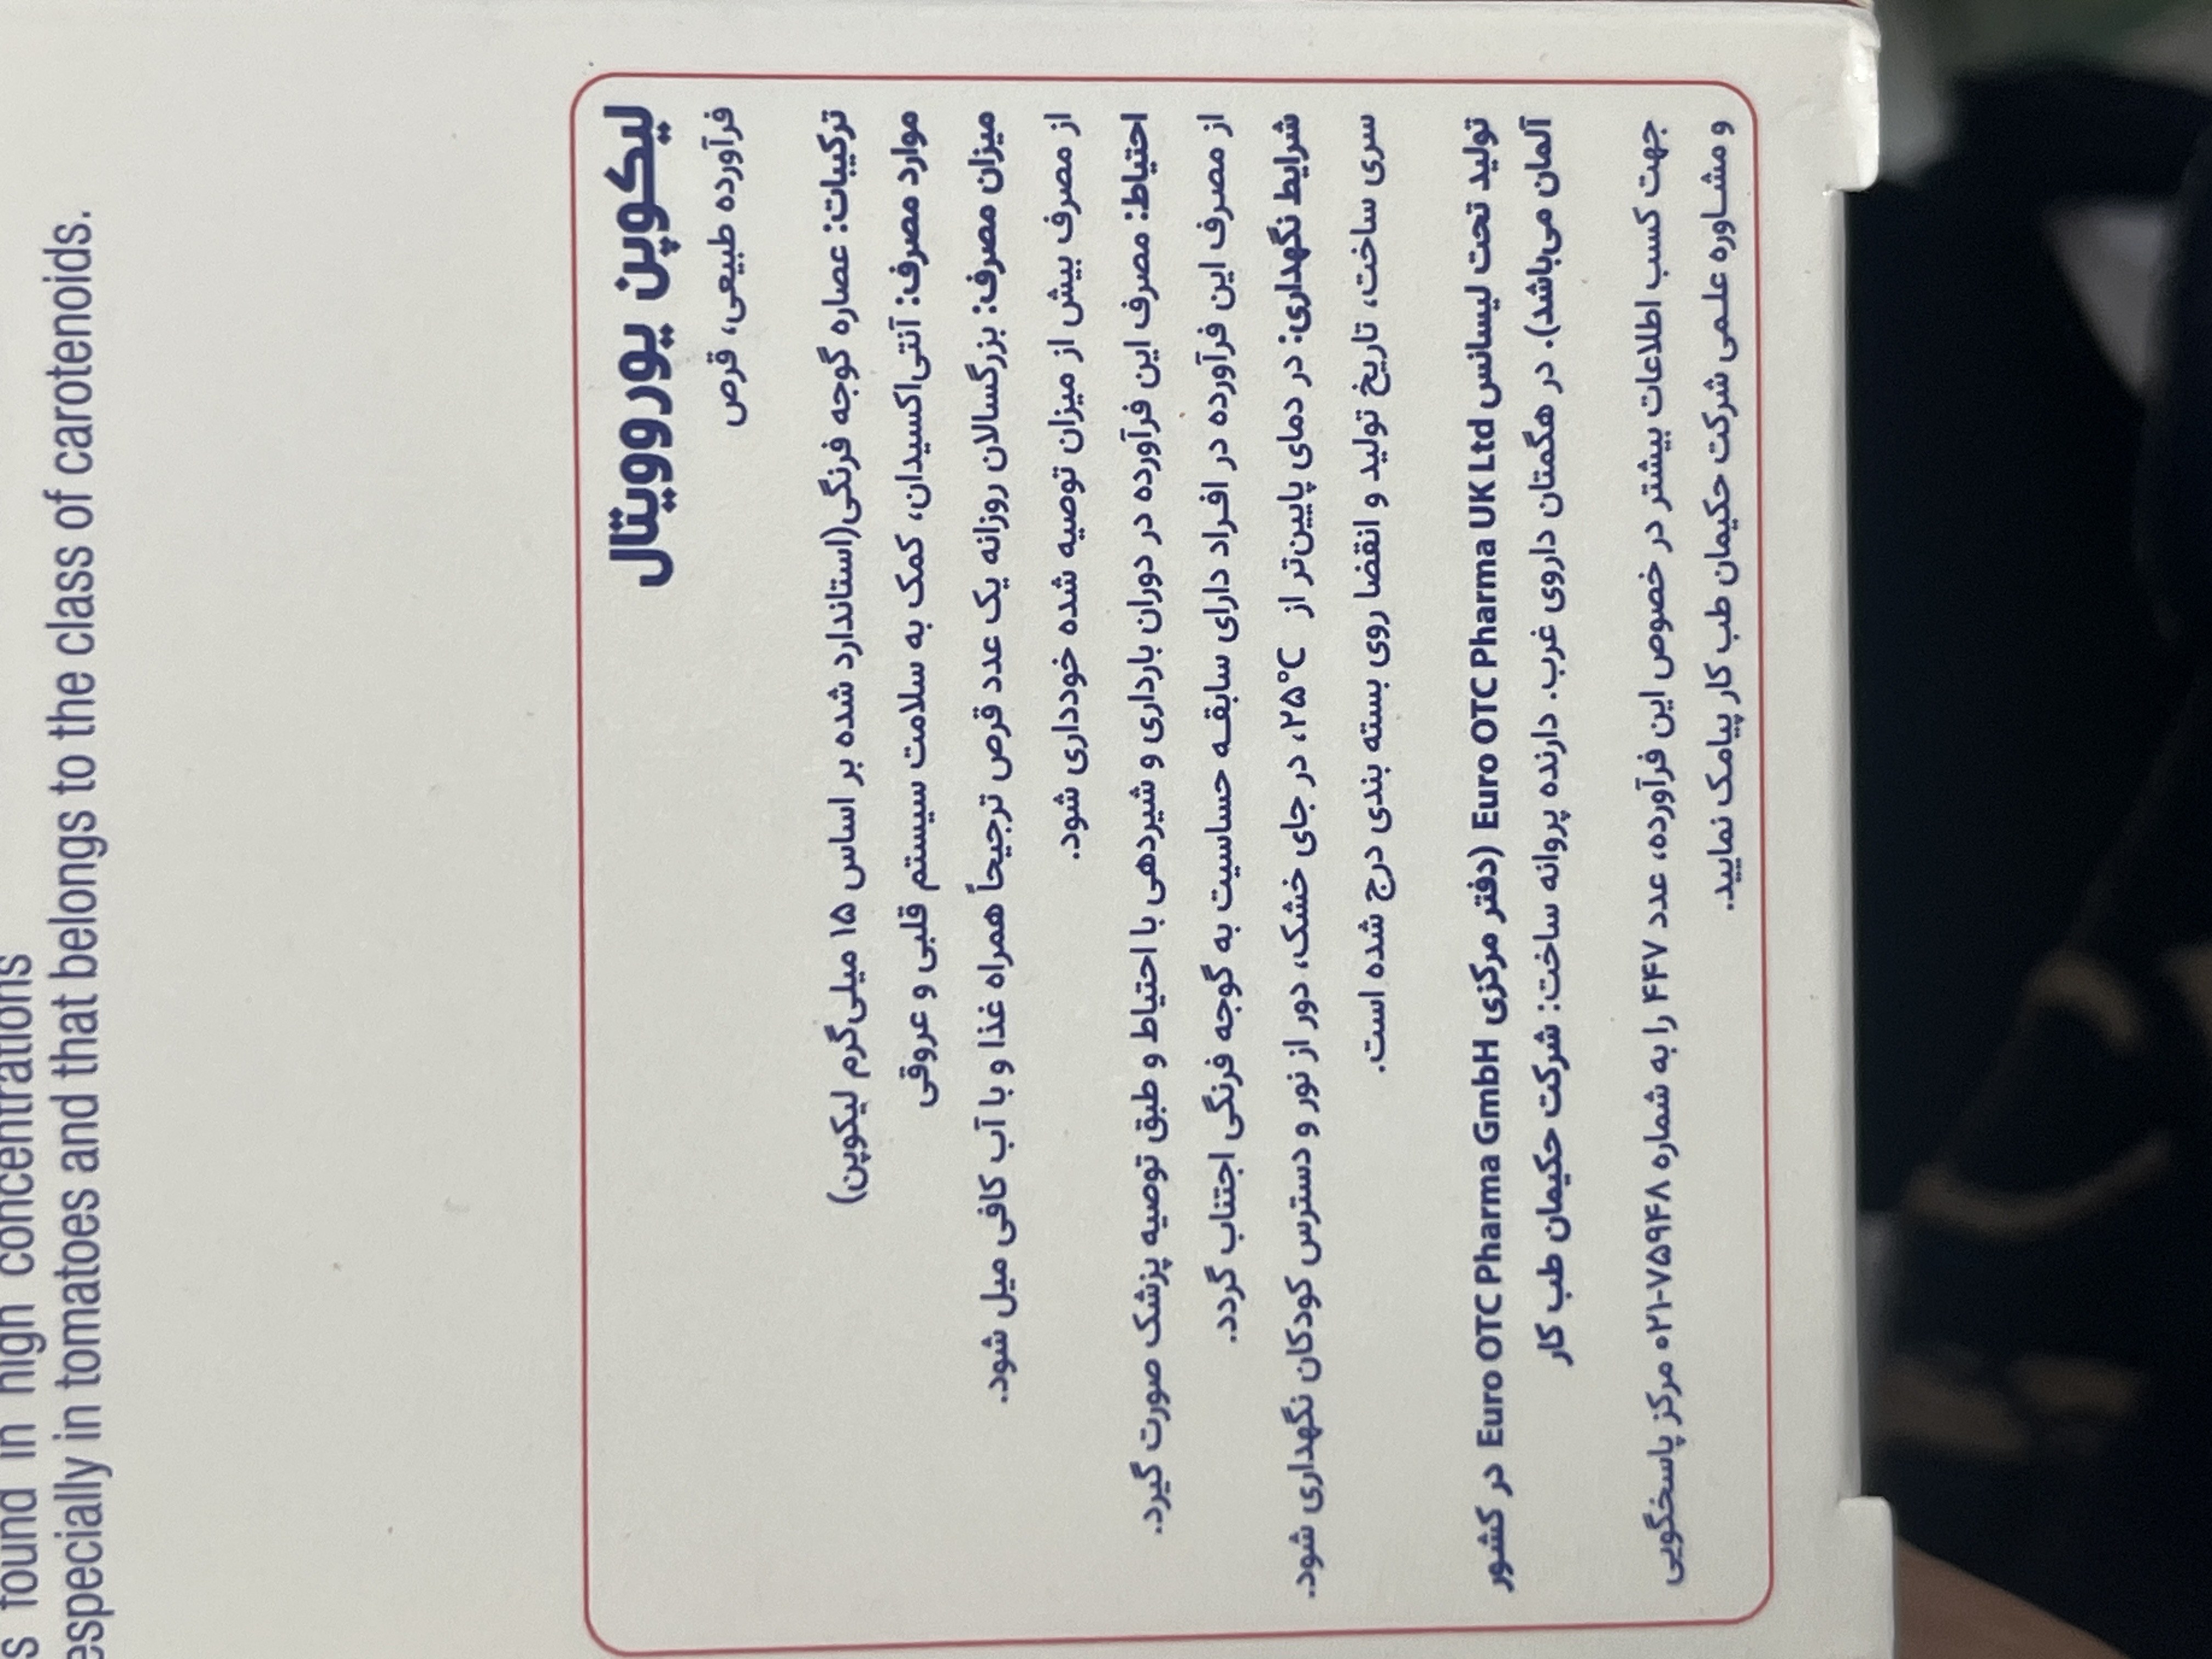 s found in high concentrations
especially in tomatoes and that belongs to the class of carotenoids.
لیکوپن یوروویتال
فرآورده طبیعی، قرص
ترکیبات: عصاره گوجه فرنگی(استاندارد شده بر اساس ۱۵ میلی‌گرم لیکوپن)
موارد مصرف: آنتی‌اکسیدان، کمک به سلامت سیستم قلبی و عروقی
میزان مصرف: بزرگسالان روزانه یک عدد قرص ترجیحاً همراه غذا و با آب کافی میل شود.
از مصرف بیش از میزان توصیه شده خودداری شود.
احتیاط: مصرف این فرآورده در دوران بارداری و شیردهی با احتیاط و طبق توصیه پزشک صورت گیرد.
از مصرف این فرآورده در افراد دارای سابقه حساسیت به گوجه فرنگی اجتناب گردد.
شرایط نگهداری: در دمای پایین‌تر از ۲۵°C، در جای خشک، دور از نور و دسترس کودکان نگهداری شود.
سری ساخت، تاریخ تولید و انقضا روی بسته بندی درج شده است.
تولید تحت لیسانس Euro OTC Pharma UK Ltd (دفتر مرکزی Euro OTC Pharma GmbH در کشور
آلمان می‌باشد). در هگمتان داروی غرب. دارنده پروانه ساخت: شرکت حکیمان طب کار
جهت کسب اطلاعات بیشتر در خصوص این فرآورده، عدد ۴۴۷ را به شماره ۰۲۱-۷۵۹۴۸ مرکز پاسخگویی
و مشاوره علمی شرکت حکیمان طب کار پیامک نمایید.